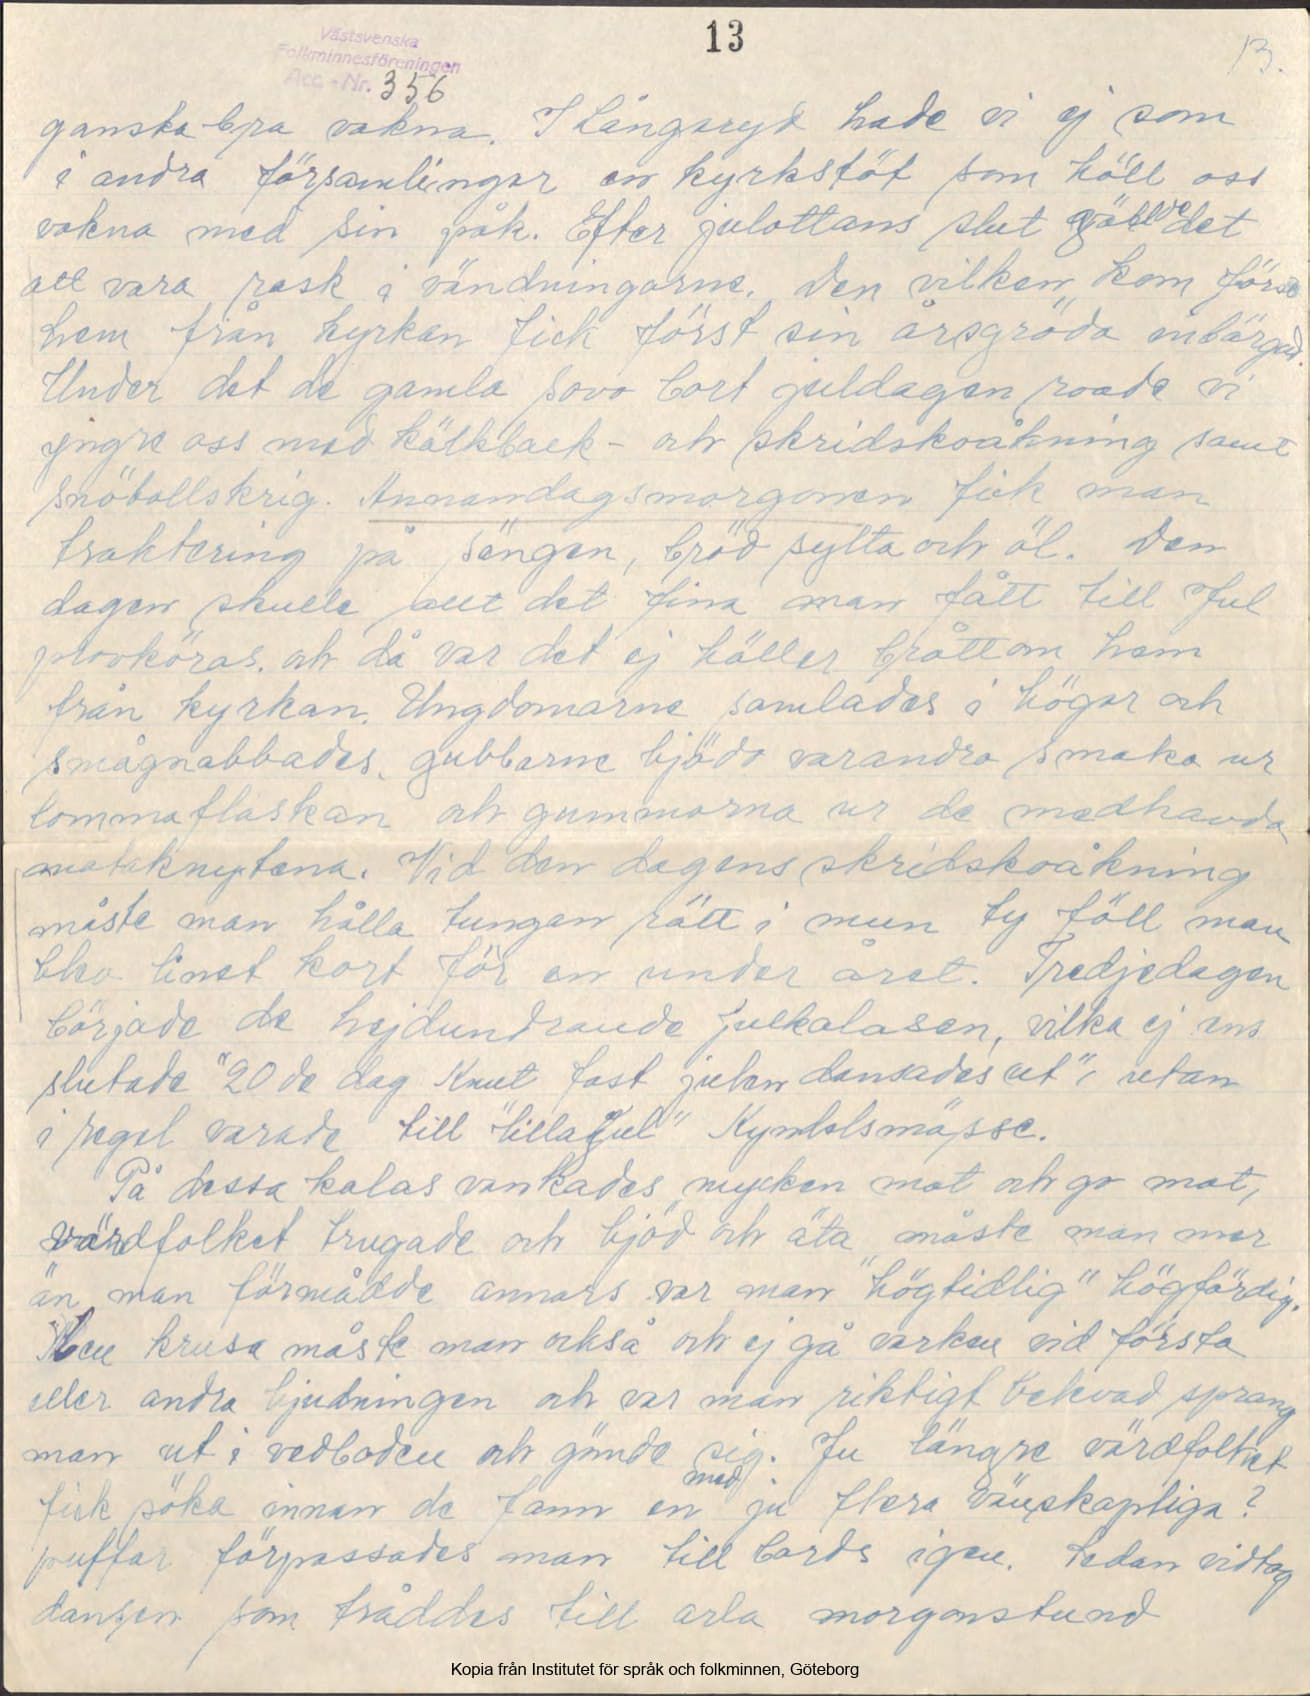 13
13.
Västsvenska
Folkminnesföreningen
Acc.-Nr. 356
ganska bra vakna. I Långaryd hade vi ej som
i andra församlingar en kyrkstöt som höll oss
vakna med sin påk. Efter julottans slut gällde det
att vara rask i vändningarne. Den vilken kom först
hem från kyrkan fick först sin årsgröda inbärgad.
Under det de gamla sovo bort juldagen roade vi
yngre oss med kälkback- och skridskoåkning samt
snöbollskrig. Annandagsmorgonen fick man
traktering på sängen, bröd sylta och öl. Den
dagen skulle allt det fina man fått till Jul
provköras. och då var det ej häller bråttom hem
från kyrkan. Ungdomarne samlades i högar och
smågnabbades. gubbarne bjödo varandra smaka ur
lommaflaskan och gummorna ur de medhavda
mataknytena. Vid den dagens skridskoåkning
måste man hålla tungan rätt i mun ty föll man
blev linet kort för en under året. Tredjedagen
började de hejdundrande julkalasen, vilka ej ens
slutade "20de dag Knut fast julen dansades ut", utan
i regel varade till "lilla Jul" Kyndelsmässe.
På dessa kalas vankades mycken mat och go mat,
värdfolket trugade och bjöd och äta måste man mer
än man förmådde annars var man "högtidlig" högfärdig.
Men krusa måste man också och ej gå varken vid första
eller andra bjudningen och var man riktigt bekvad sprang
man ut i vedboden och gömde sig. Ju längre värdfolket
fick söka innan de fann en med ju flera vänskapliga?
puffar förpassades man till bords igen. Sedan vidtog
dansen som tråddes till arla morgonstund
Kopia från Institutet för språk och folkminnen, Göteborg